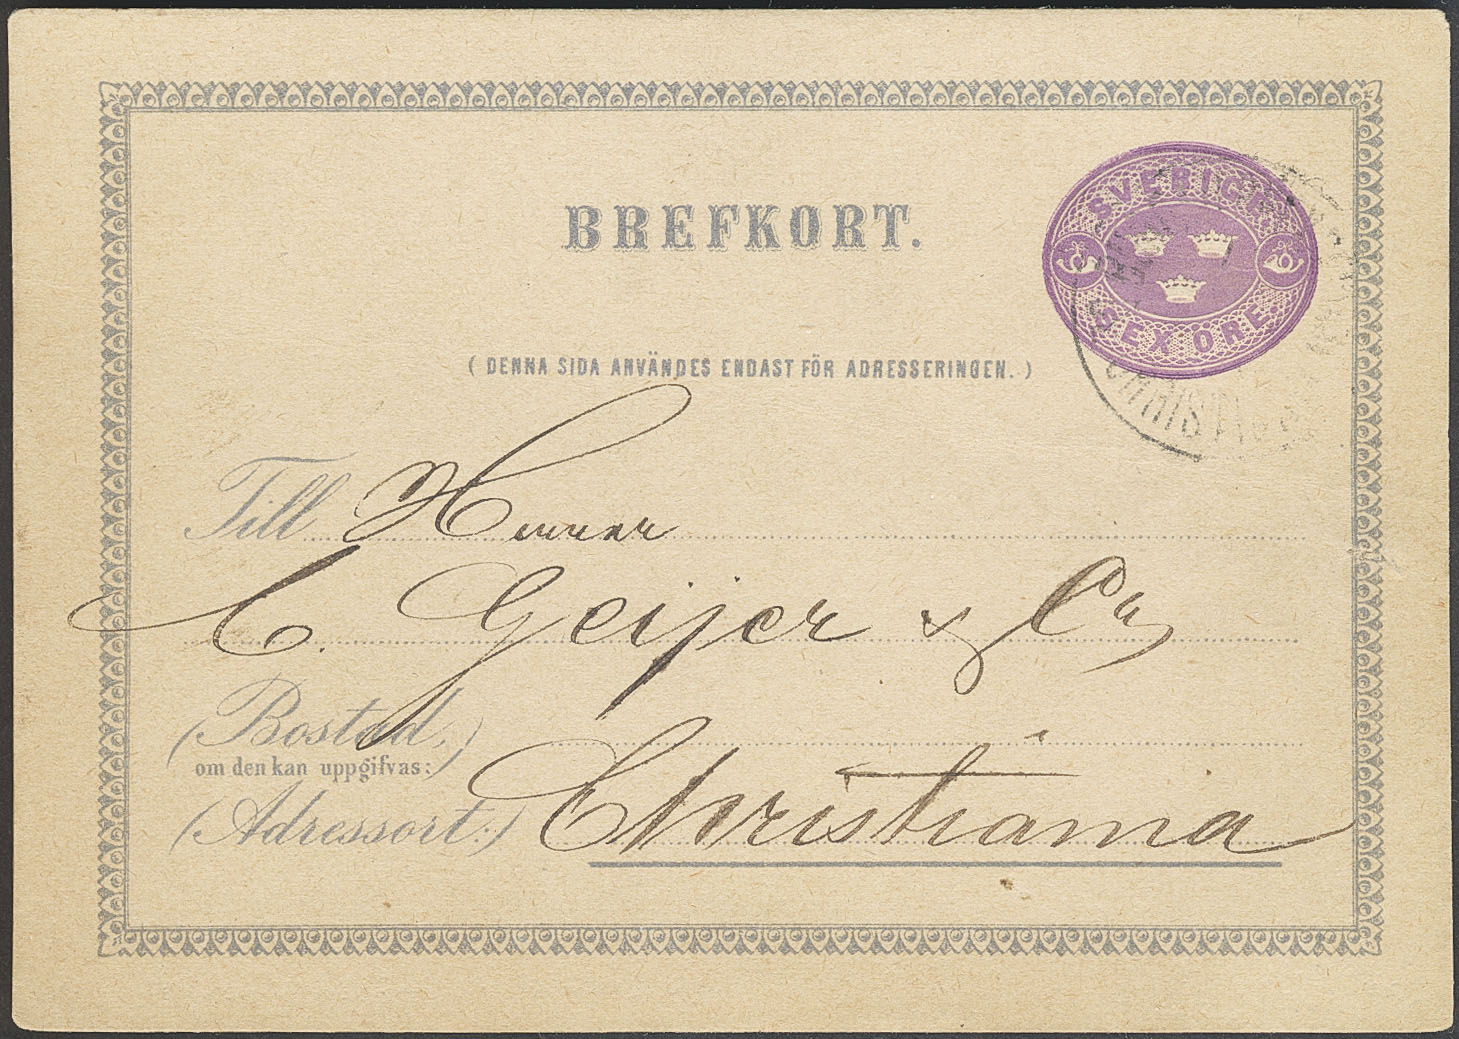 BREFKORT.
SVERIGE
SEX ÖRE
( DENNA SIDA ANVÄNDES ENDAST FÖR ADRESSERINGEN. )
Till Herrar
C. Geijer & Co
(Bostad,)
om den kan uppgifvas:
(Adressort:) Christiania